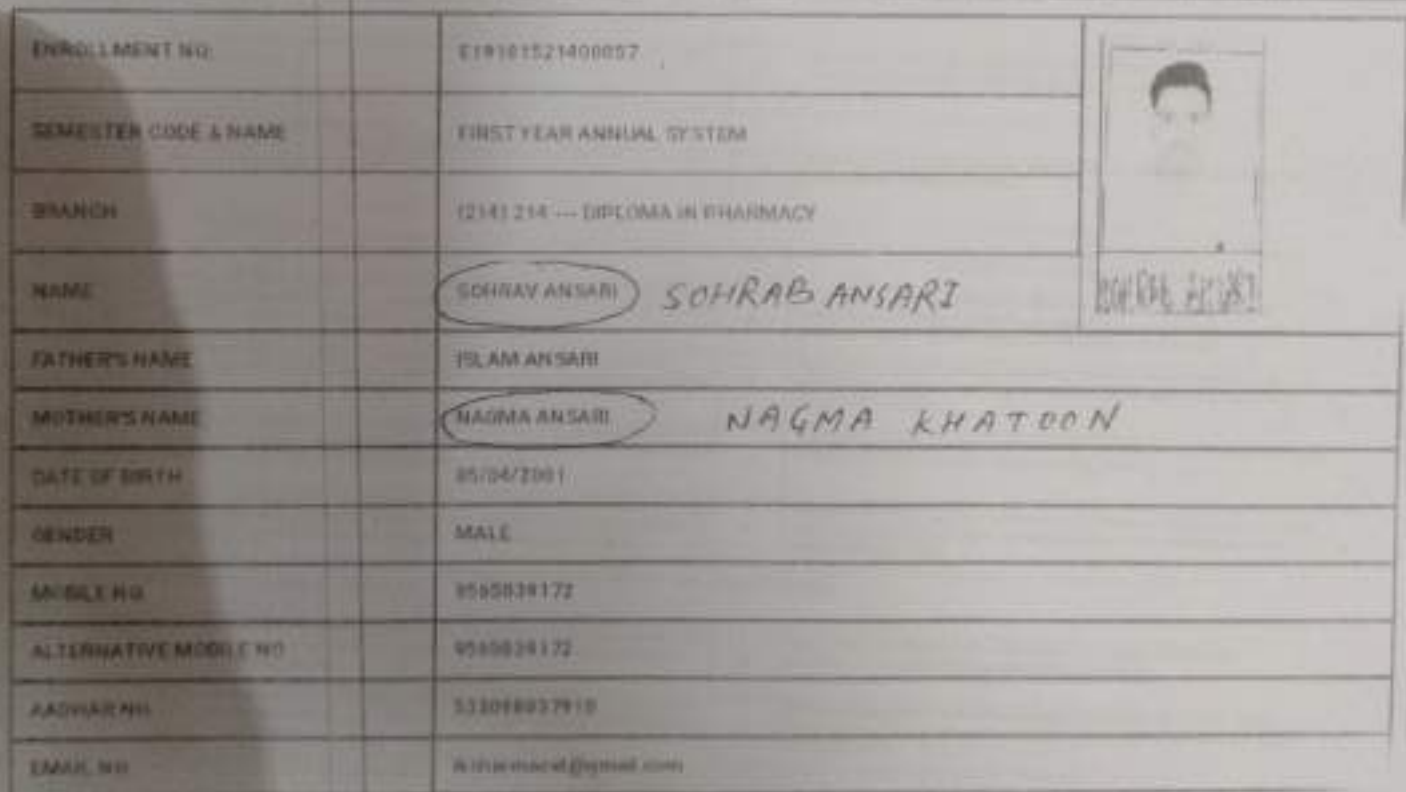 ENROLLMENT NO. E19101521400057
SEMESTER CODE & NAME FIRST YEAR ANNUAL SYSTEM
BRANCH (214) 214 --- DIPLOMA IN PHARMACY
NAME SOHRAV ANSARI SOHRAB ANSARI
FATHER'S NAME ISLAM ANSARI
MOTHER'S NAME NAGMA ANSARI NAGMA KHATOON
DATE OF BIRTH 05/04/2001
GENDER MALE
MOBILE NO
ALTERNATIVE MOBILE NO
AADHAR NO
EMAIL